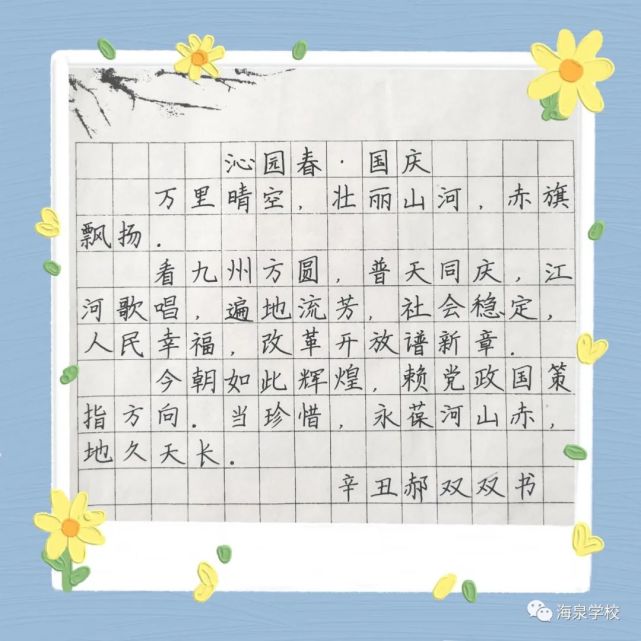 沁园春·国庆
万里晴空，壮丽山河，赤旗
飘扬．
看九州方圆，普天同庆，江
河歌唱，遍地流芳，社会稳定，
人民幸福，改革开放谱新章．
今朝如此辉煌，赖党政国策
指方向．当珍惜，永葆河山赤，
地久天长．
辛丑郝双双书
海泉学校